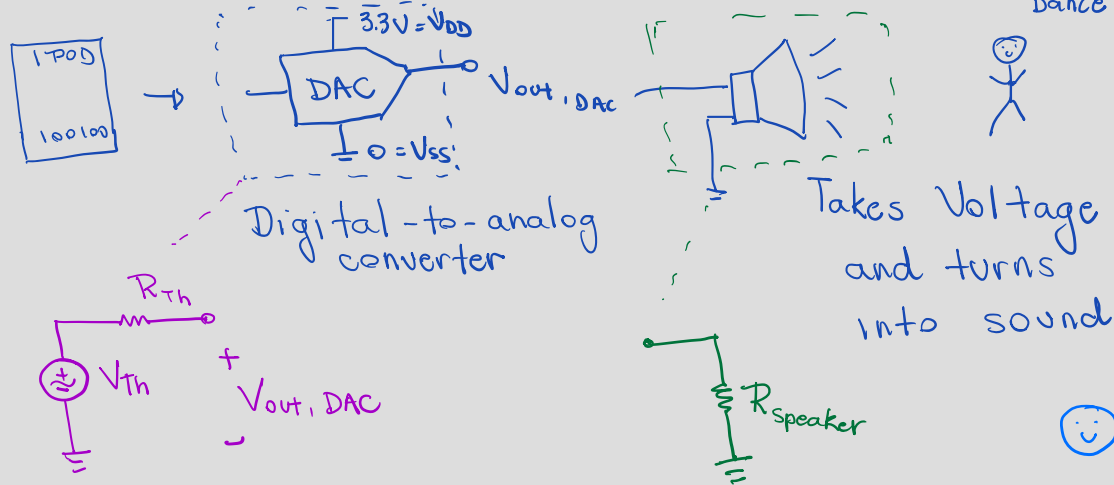 Dance
IPOD
100100
3.3V = VDD
DAC
Vout, DAC
0 = Vss
Digital-to-analog
converter
Takes Voltage
and turns
into sound
RTh
+
VTh
Vout, DAC
-
Rspeaker